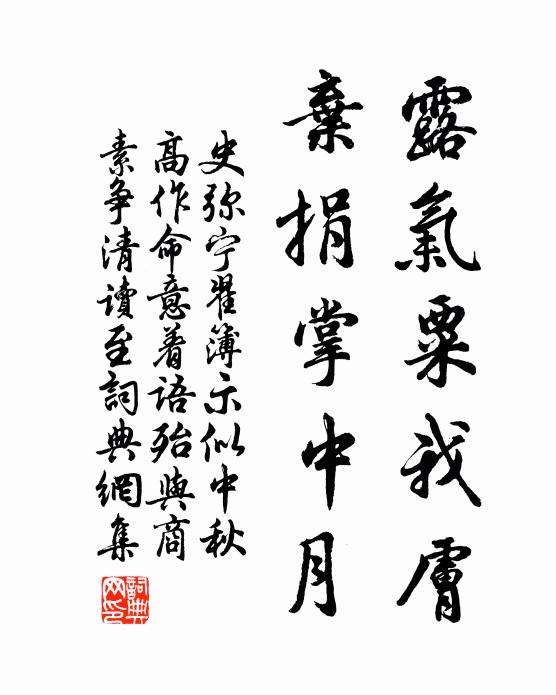 露氣粟我膚
棄捐掌中月
史弥宁瞿簿示似中秋
高作命意着语殆與商
素争清讀至詞典網集
詞典网印